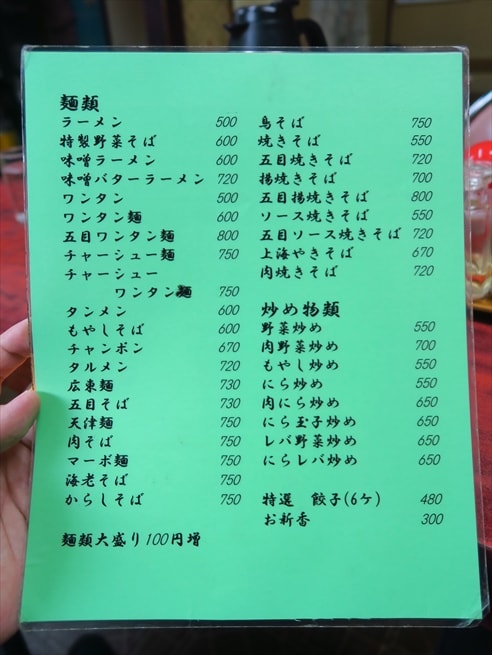 麺類
ラーメン 500
特製野菜そば 600
味噌ラーメン 600
味噌バターラーメン 720
ワンタン 500
ワンタン麺 600
五目ワンタン麺 800
チャーシュー麺 750
チャーシュー
ワンタン麺 750
タンメン 600
もやしそば 600
チャンポン 670
タルメン 720
広東麺 730
五目そば 730
天津麺 750
肉そば 750
マーボ麺 750
海老そば 750
からしそば 750
麺類大盛り100円増
鳥そば 750
焼きそば 550
五目焼きそば 720
揚焼きそば 700
五目揚焼きそば 800
ソース焼きそば 550
五目ソース焼きそば 720
上海やきそば 670
肉焼きそば 720
炒め物類
野菜炒め 550
肉野菜炒め 700
もやし炒め 550
にら炒め 550
肉にら炒め 650
にら玉子炒め 650
レバ野菜炒め 650
にらレバ炒め 650
特選 餃子(6ケ) 480
お新香 300